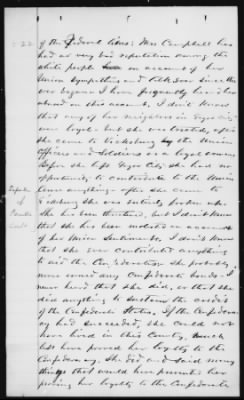 of the Federal lines; Mrs Campbell has
had a very bad reputation among the
white people on account of her
Union Sympathies and talk ever since the
war began I have frequently heard her
abused on this account. I don't know
that any of her neighbors in Yazoo City
was loyal. but she was treated, after
she came to Vicksburg by the Union
Officers and Soldiers as a loyal woman
Before she left Yazoo City she had no
opportunity to contribute to the Union
Cause anything. after she came to
Vicksburg she was entirely broken up
She has been threatened, but I don't know
that she has been molested on account
of her Union Sentiments, I don't know
that she ever contributed anything
to aid the Confederacy. She probably
never owned any Confederate bonds. I
never heard that she did, or that she
did anything to sustain the credit
of the Confederate States. If the Confederacy
had succeeded, she could not
have lived in this County, much
less have proved her loyalty to the
Confederacy. She did and said many
things that would have prevented her
proving her loyalty to the Confederate